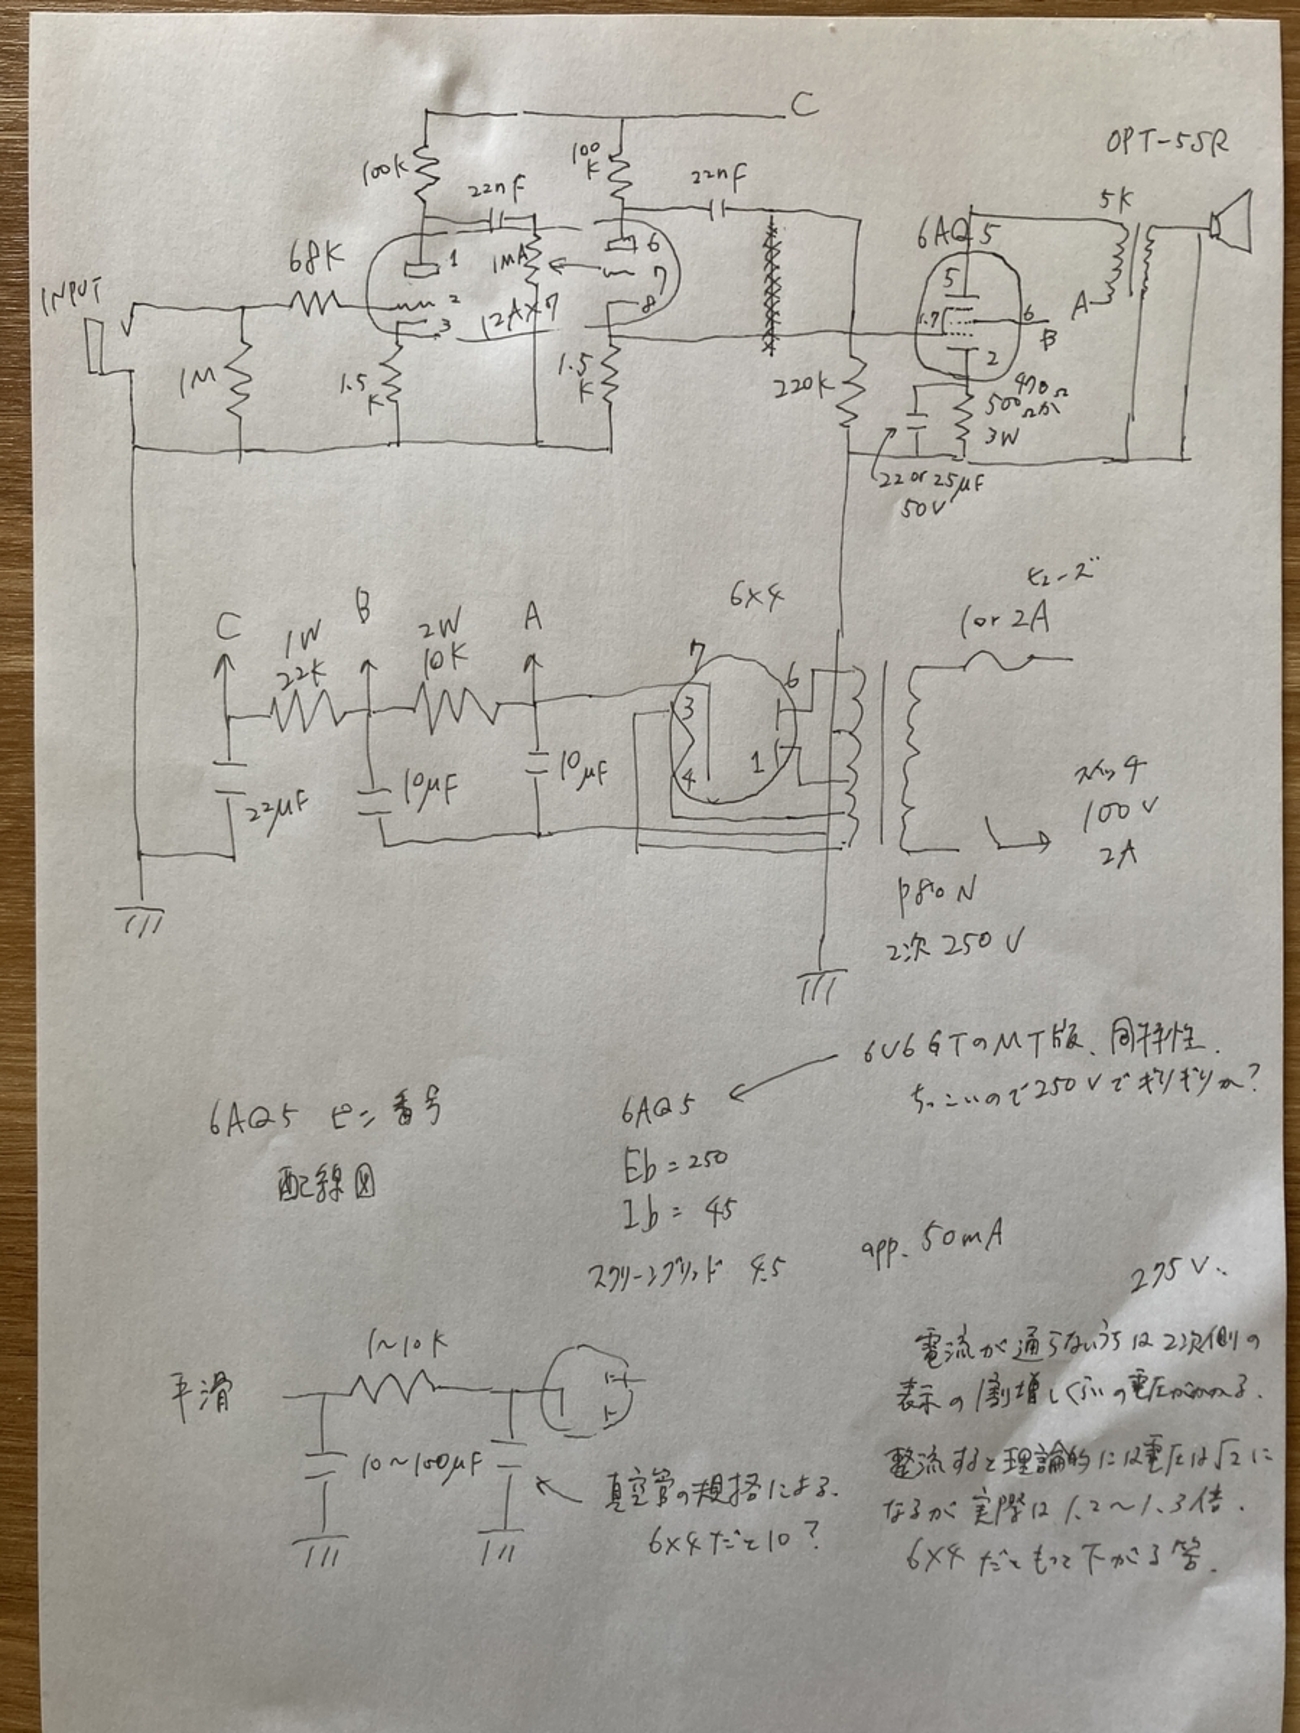 C
OPT-5SR
100K
22nF
100
K
22nF
5K
6AQ5
68K
INPUT
1
1MA
6
7
8
5
1.7
6
B
A
2
3
12AX7
1M
1.5
K
1.5
K
220K
2
470Ω
500
Ωか
3W
22 or 25μF
50V
ヒューズ
1 or 2A
6X4
C
1W
22K
B
2W
10K
A
7
6
3
4
1
22μF
10μF
10μF
スイッチ
100V
2A
P80N
2次 250V
6V6GTのMT版、同特性.
ちっこいので250Vでギリギリか?
6AQ5 ピン番号
配線図
6AQ5
Eb=250
Ib= 45
スクリーングリッド 4.5
app. 50mA
275V..
電流が通らないうちは2次側の
表示の1割増しくらいの電圧がかかる.
整流すると理論的には電圧は√2に
なるが実際は1.2〜1.3倍.
6X4だともっと下がる筈.
平滑
1〜10K
10〜100μF
真空管の規格による.
6X4だと10?